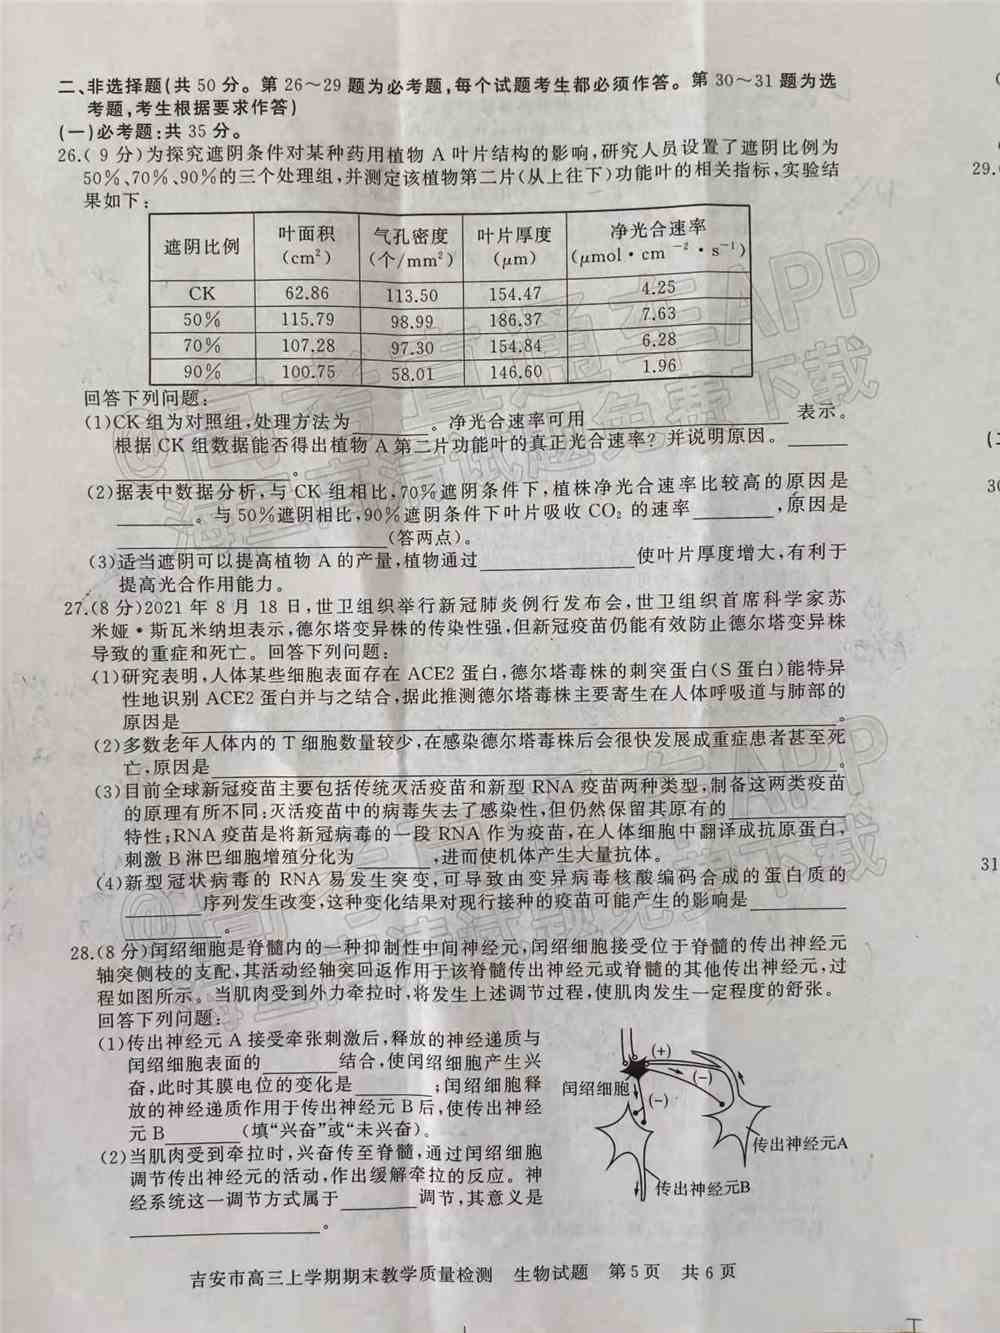 二、非选择题(共 50 分。第 26～29 题为必考题,每个试题考生都必须作答。第 30～31 题为选
考题,考生根据要求作答)
(一)必考题:共 35 分。
26.( 9 分)为探究遮阴条件对某种药用植物 A 叶片结构的影响,研究人员设置了遮阴比例为
50%、70%、90%的三个处理组,并测定该植物第二片(从上往下)功能叶的相关指标,实验结
果如下:
遮阴比例 叶面积(cm²) 气孔密度(个/mm²) 叶片厚度(μm) 净光合速率(μmol·cm⁻²·s⁻¹)
CK 62.86 113.50 154.47 4.25
50% 115.79 98.99 186.37 7.63
70% 107.28 97.30 154.84 6.28
90% 100.75 58.01 146.60 1.96
回答下列问题:
(1)CK 组为对照组,处理方法为________。净光合速率可用________________表示。
根据 CK 组数据能否得出植物 A 第二片功能叶的真正光合速率? 并说明原因。______
________________。
(2)据表中数据分析,与 CK 组相比,70%遮阴条件下,植株净光合速率比较高的原因是
________。与 50%遮阴相比,90%遮阴条件下叶片吸收 CO₂ 的速率________,原因是
________________________(答两点)。
(3)适当遮阴可以提高植物 A 的产量,植物通过______________使叶片厚度增大,有利于
提高光合作用能力。
27.(8 分)2021 年 8 月 18 日,世卫组织举行新冠肺炎例行发布会,世卫组织首席科学家苏
米娅·斯瓦米纳坦表示,德尔塔变异株的传染性强,但新冠疫苗仍能有效防止德尔塔变异株
导致的重症和死亡。回答下列问题:
(1)研究表明,人体某些细胞表面存在 ACE2 蛋白,德尔塔毒株的刺突蛋白(S 蛋白)能特异
性地识别 ACE2 蛋白并与之结合,据此推测德尔塔毒株主要寄生在人体呼吸道与肺部的
原因是________________________________。
(2)多数老年人体内的 T 细胞数量较少,在感染德尔塔毒株后会很快发展成重症患者甚至死
亡,原因是________________________________。
(3)目前全球新冠疫苗主要包括传统灭活疫苗和新型 RNA 疫苗两种类型,制备这两类疫苗
的原理有所不同:灭活疫苗中的病毒失去了感染性,但仍然保留其原有的__________
特性;RNA 疫苗是将新冠病毒的一段 RNA 作为疫苗,在人体细胞中翻译成抗原蛋白,
刺激 B 淋巴细胞增殖分化为________,进而使机体产生大量抗体。
(4)新型冠状病毒的 RNA 易发生突变,可导致由变异病毒核酸编码合成的蛋白质的
________序列发生改变,这种变化结果对现行接种的疫苗可能产生的影响是________
________。
28.(8 分)闰绍细胞是脊髓内的一种抑制性中间神经元,闰绍细胞接受位于脊髓的传出神经元
轴突侧枝的支配,其活动经轴突回返作用于该脊髓传出神经元或脊髓的其他传出神经元,过
程如图所示。当肌肉受到外力牵拉时,将发生上述调节过程,使肌肉发生一定程度的舒张。
回答下列问题:
(1)传出神经元 A 接受牵张刺激后,释放的神经递质与
闰绍细胞表面的________结合,使闰绍细胞产生兴
奋,此时其膜电位的变化是________;闰绍细胞释
放的神经递质作用于传出神经元 B 后,使传出神经
元 B________(填“兴奋”或“未兴奋)。
(2)当肌肉受到牵拉时,兴奋传至脊髓,通过闰绍细胞
调节传出神经元的活动,作出缓解牵拉的反应。神
经系统这一调节方式属于________调节,其意义是
__________________。
(+)
(−)
闰绍细胞
(−)
传出神经元A
传出神经元B
吉安市高三上学期期末教学质量检测 生物试题 第 5 页 共 6 页
29.(
(二
30
31